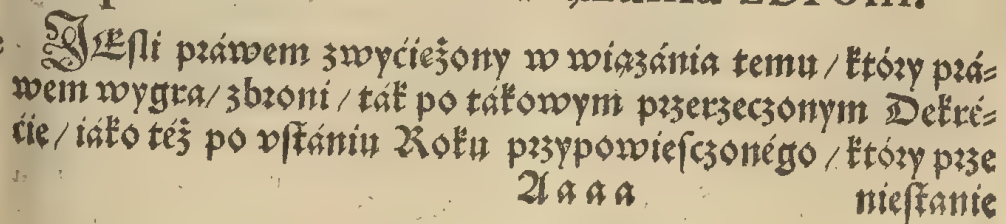 JEſli práwem zwyćiężony w wiązánia temu / który prá⸗
wem wygra / zbroni / ták po tákowym przerzeczonym Dekré⸗
ćie / iáko też po vſtániu Roku przypowieſczonégo / który prze
Aaaa nieſtanie